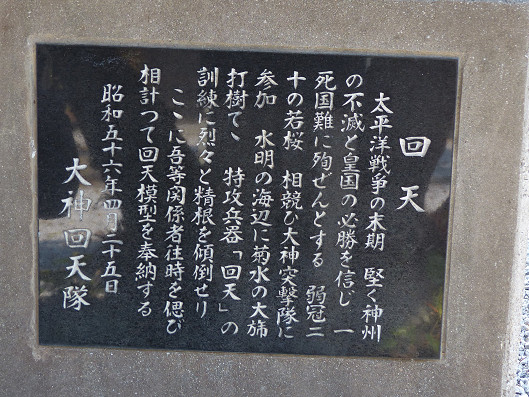 回天
太平洋戦争の末期 堅く神州
の不滅と皇国の必勝を信じ 一
死国難に殉ぜんとする 弱冠二
十の若桜 相競ひ大神突撃隊に
参加 水明の海辺に菊水の大旆
打樹てゝ 特攻兵器「回天」の
訓練に烈々と精根を傾倒せり
こゝに吾等関係者往時を偲び
相計つて回天模型を奉納する
昭和五十六年四月二十五日
大神回天隊